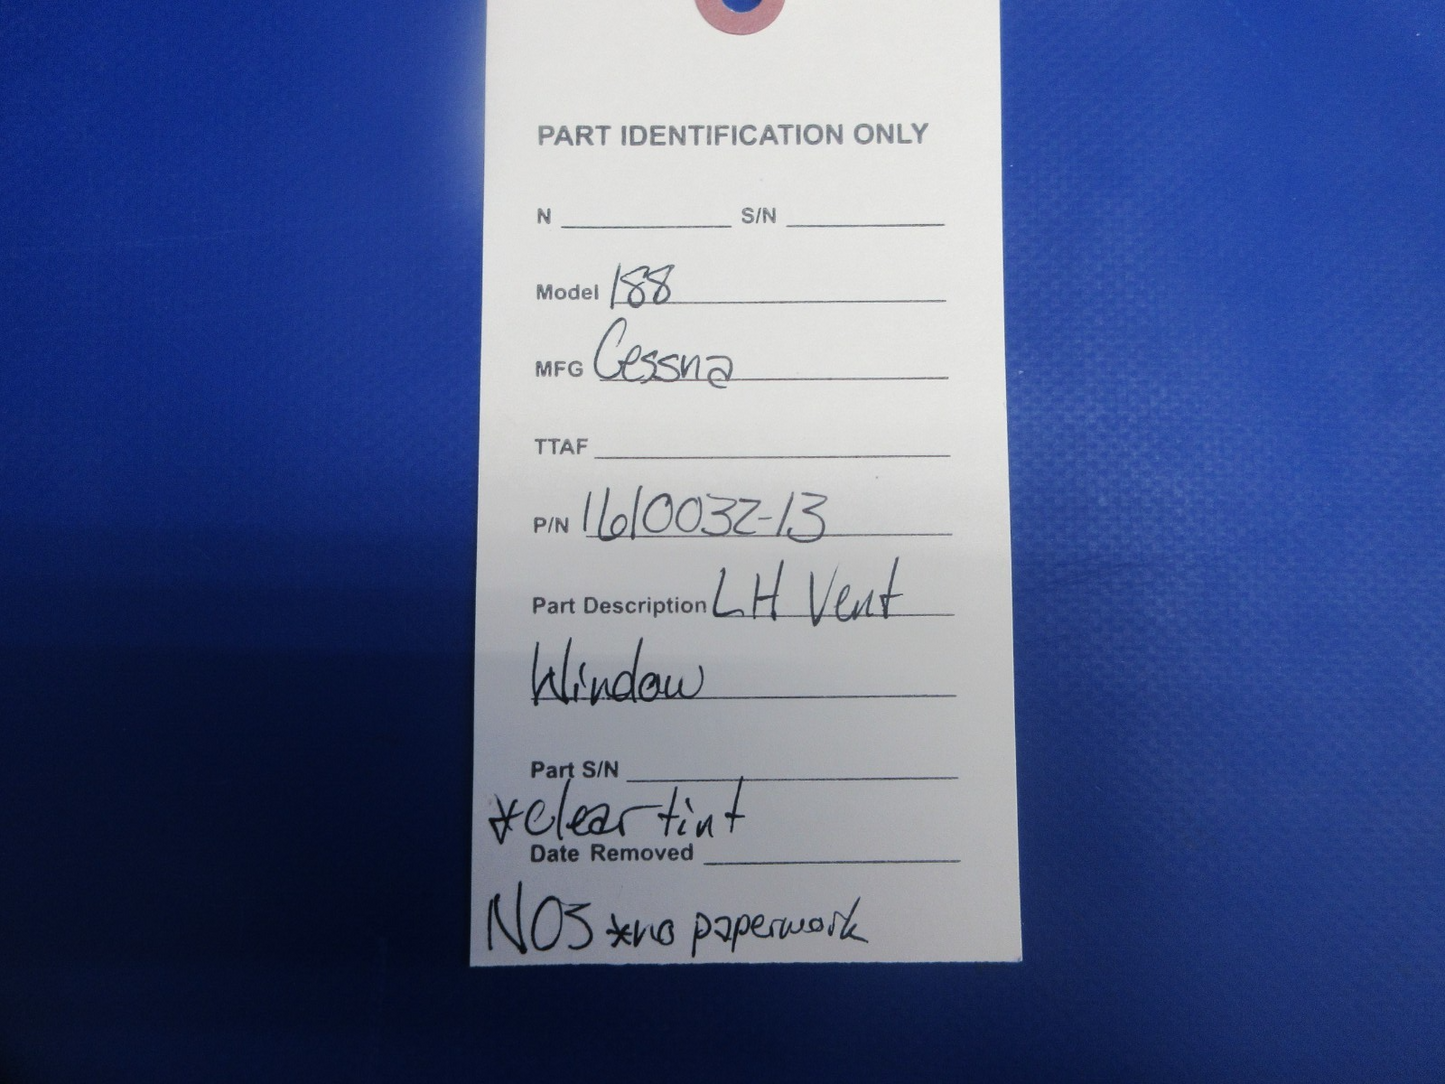 PART IDENTIFICATION ONLY
N S/N
Model 188
MFG Cessna
TTAF
P/N 1610032-13
Part Description LH Vent
Window
Part S/N
*clear tint
Date Removed
NOS *no paperwork